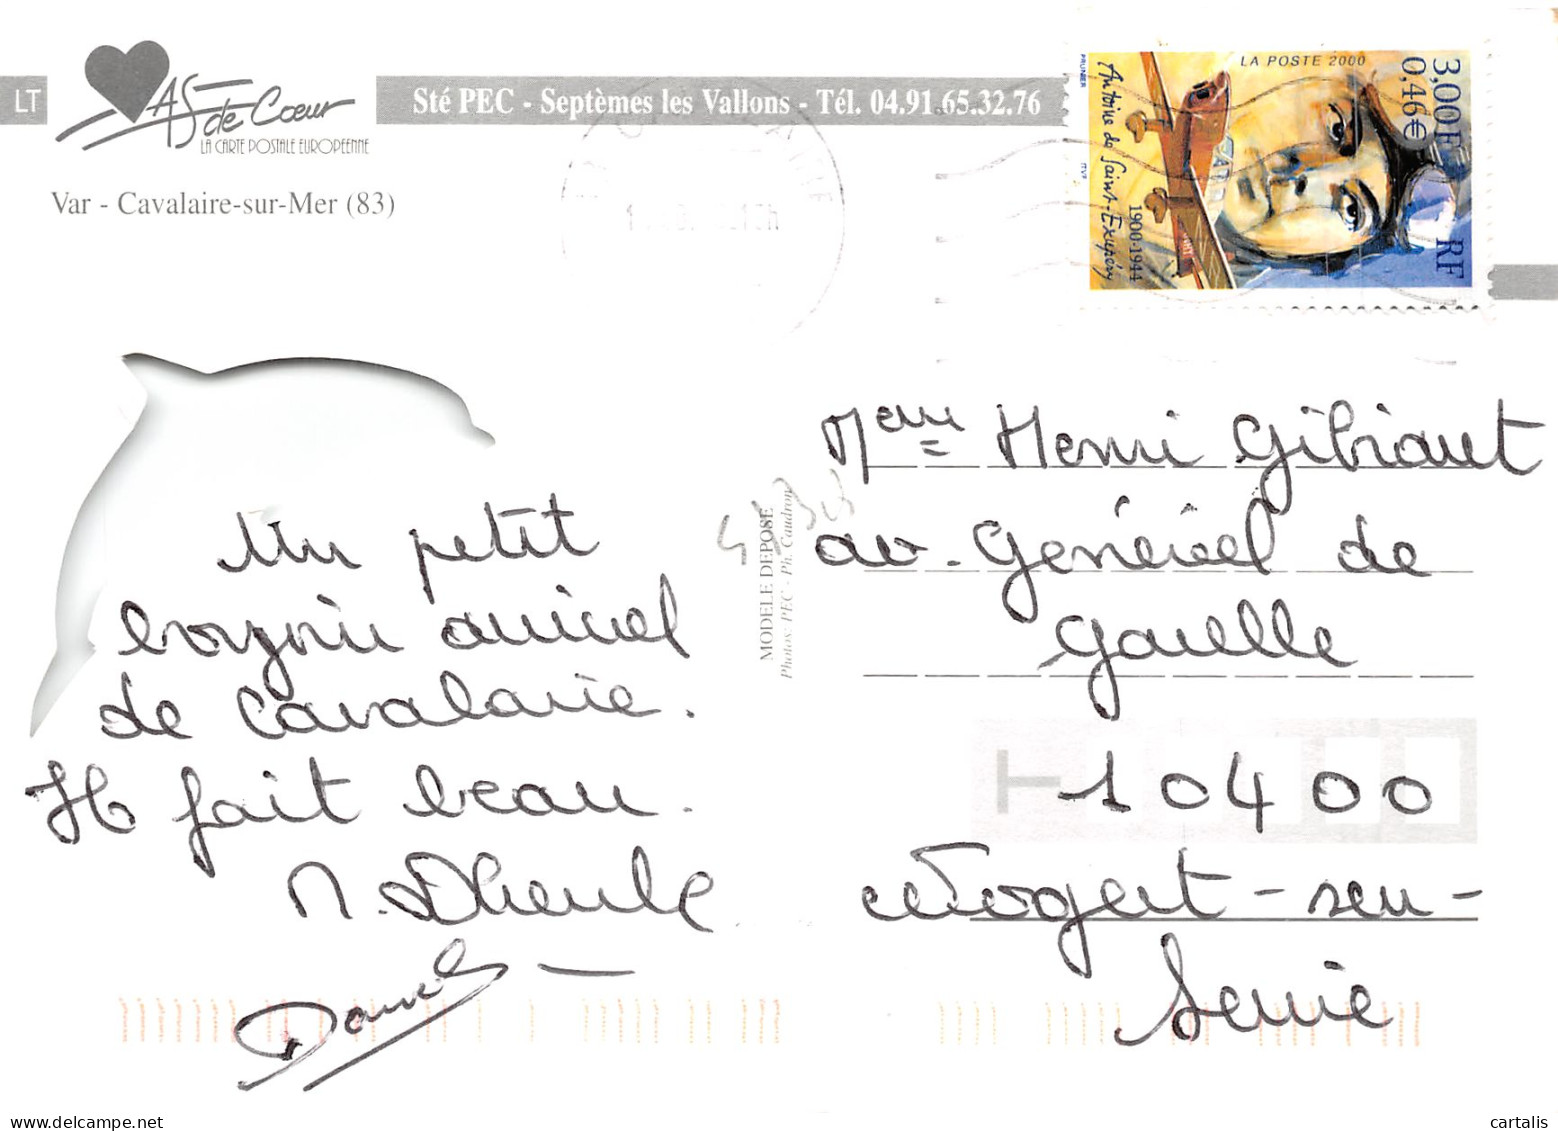 LT
AS de Cœur
LA CARTE POSTALE EUROPEENNE
Sté PEC - Septèmes les Vallons - Tél. 04.91.65.32.76
Var - Cavalaire-sur-Mer (83)
LA POSTE 2000
3,00F
0,46€
RF
Antoine de Saint-Exupéry
1900-1944
PRUNIER
ITVF
Un petit
bonjour amical
de Cavalaire.
Il fait beau.
MODELE DEPOSE
Photos: PEC - Ph. Caudron
Mme Henri Gibiaut
av. Général de
Gaulle
10400
Nogent-seu-
Seine
cartalis